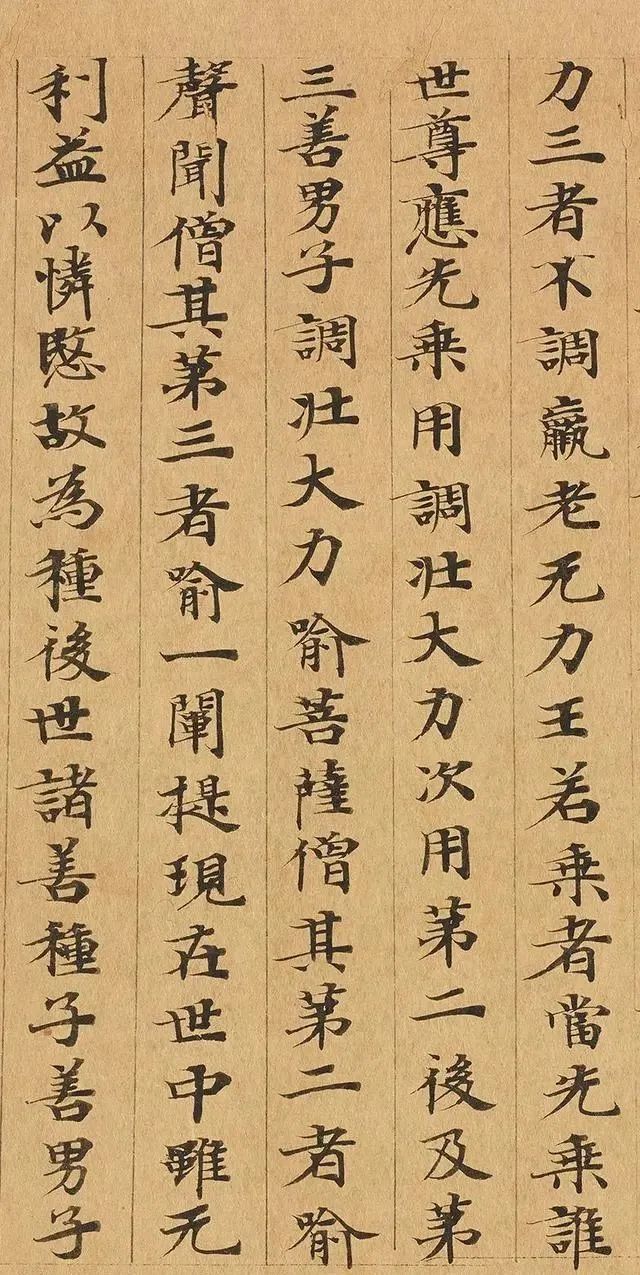 力三者不調羸老无力王若乗者當先乗誰
世尊應先乗用調壮大力次用第二後及第
三善男子調壮大力喻菩薩僧其第二者喻
聲聞僧其第三者喻一闡提現在世中雖无
利益以憐愍故為種後世諸善種子善男子